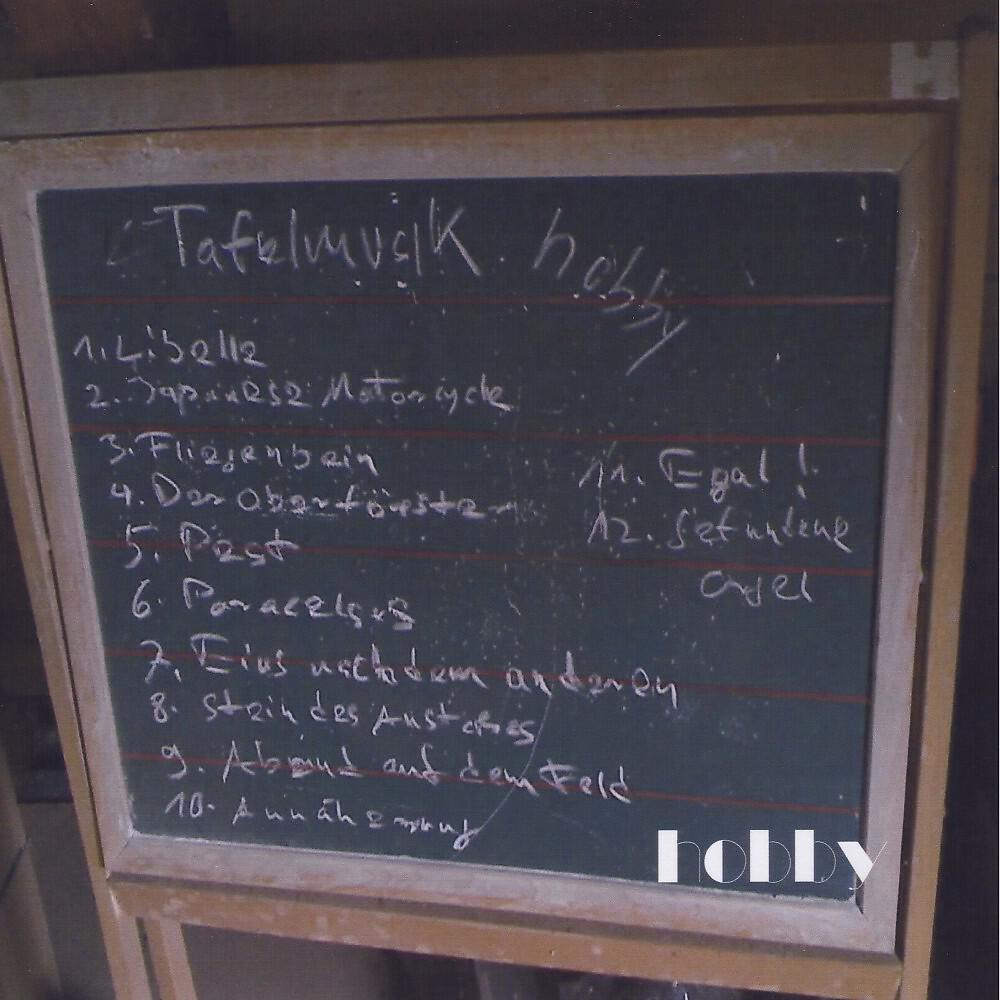 Tafelmusik hobby
1. Libelle
2. Japanese Motorcycle
3. Fliegenbein
4. Der Oberförster
5. Pest
6. Paracelsus
7. Eins nach dem anderen
8. Stein des Anstoßes
9. Abend auf dem Feld
10. Annäherung
11. Egal!
12. Gefundene
Orgel
hobby